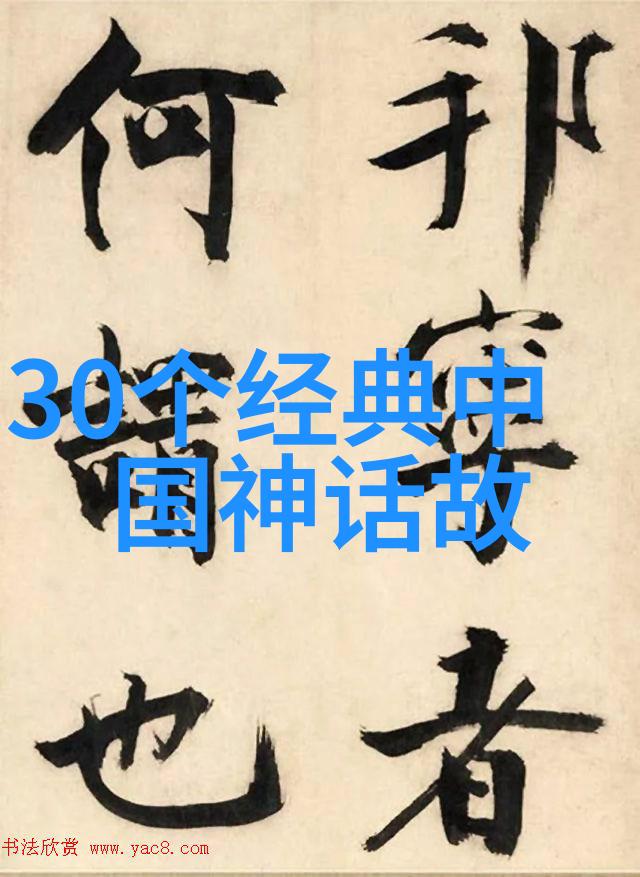 邦寧者
何
也
30个经典中
国神话故
书法欣赏 www.yac8.com